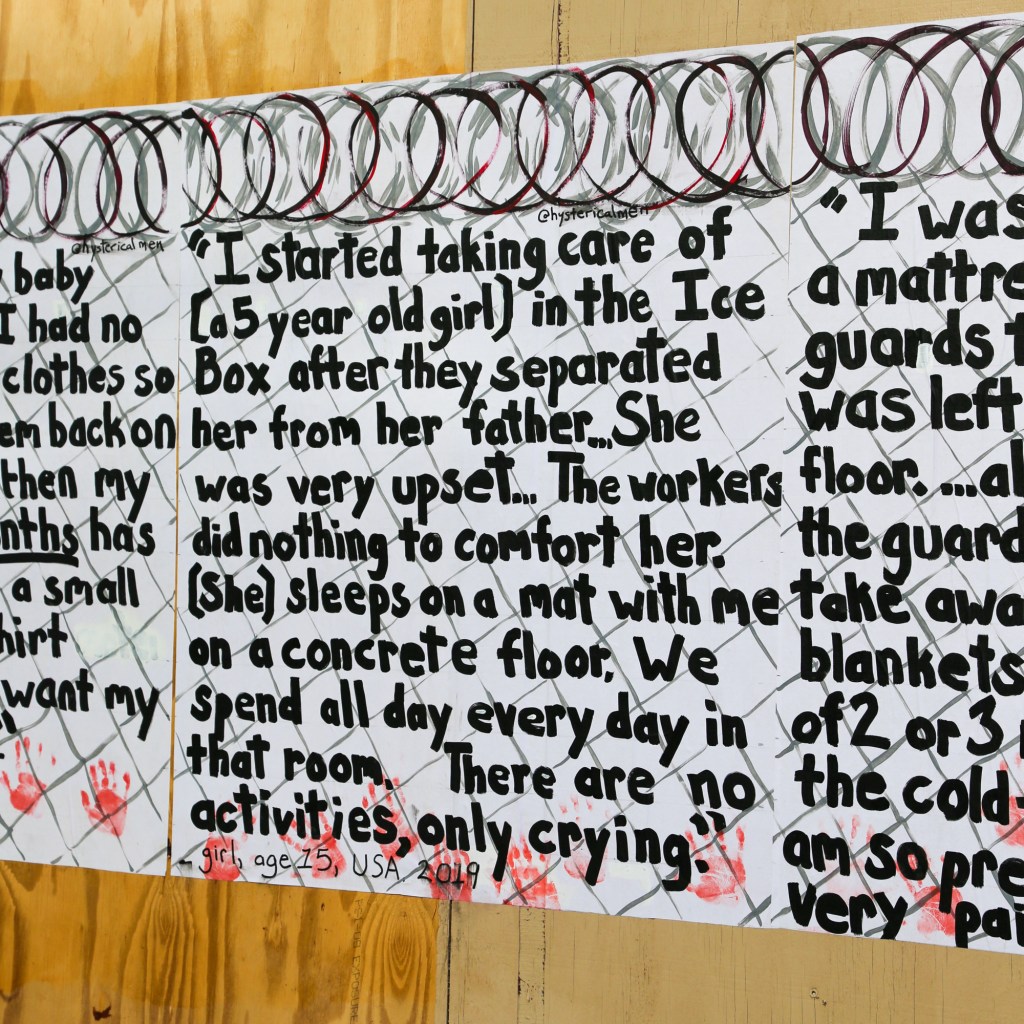 @hysterical men
baby
I had no
clothes so
em back on
then my
nths has
a small
hirt
want my
@hystericalmen
"I started taking care of
(a 5 year old girl) in the Ice
Box after they separated
her from her father...She
was very upset... The workers
did nothing to comfort her.
(She) sleeps on a mat with me
on a concrete floor. We
spend all day every day in
that room. There are no
activities, only crying."
- girl, age 15, USA, 2019
"I was
a mattre
guards t
was left
floor. ...al
the guard
take awa
blankets
of 2 or 3
the cold
am so pre
very pai